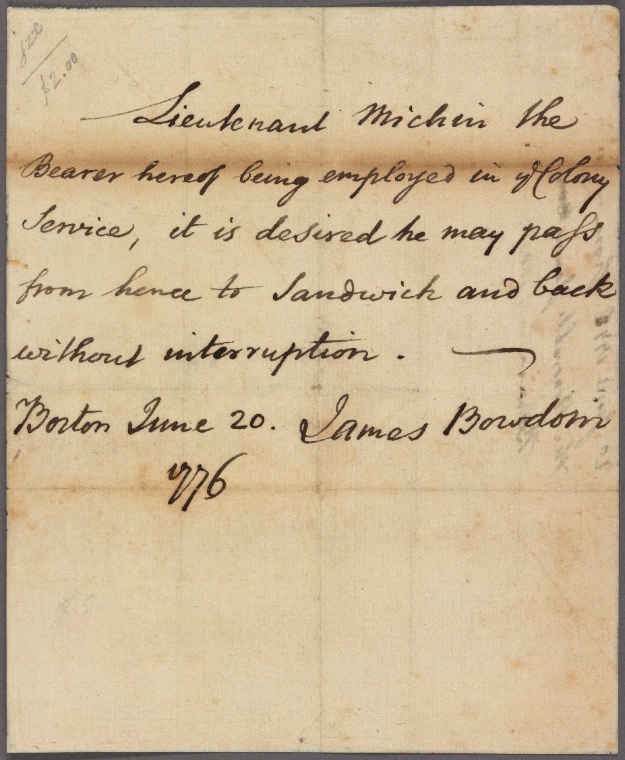 $2.00
Lieutenant Michin the
Bearer hereof being employed in ye Colony
Service, it is desired he may pass
from hence to Sandwich and back
without interruption.
Boston June 20. James Bowdoin
1776